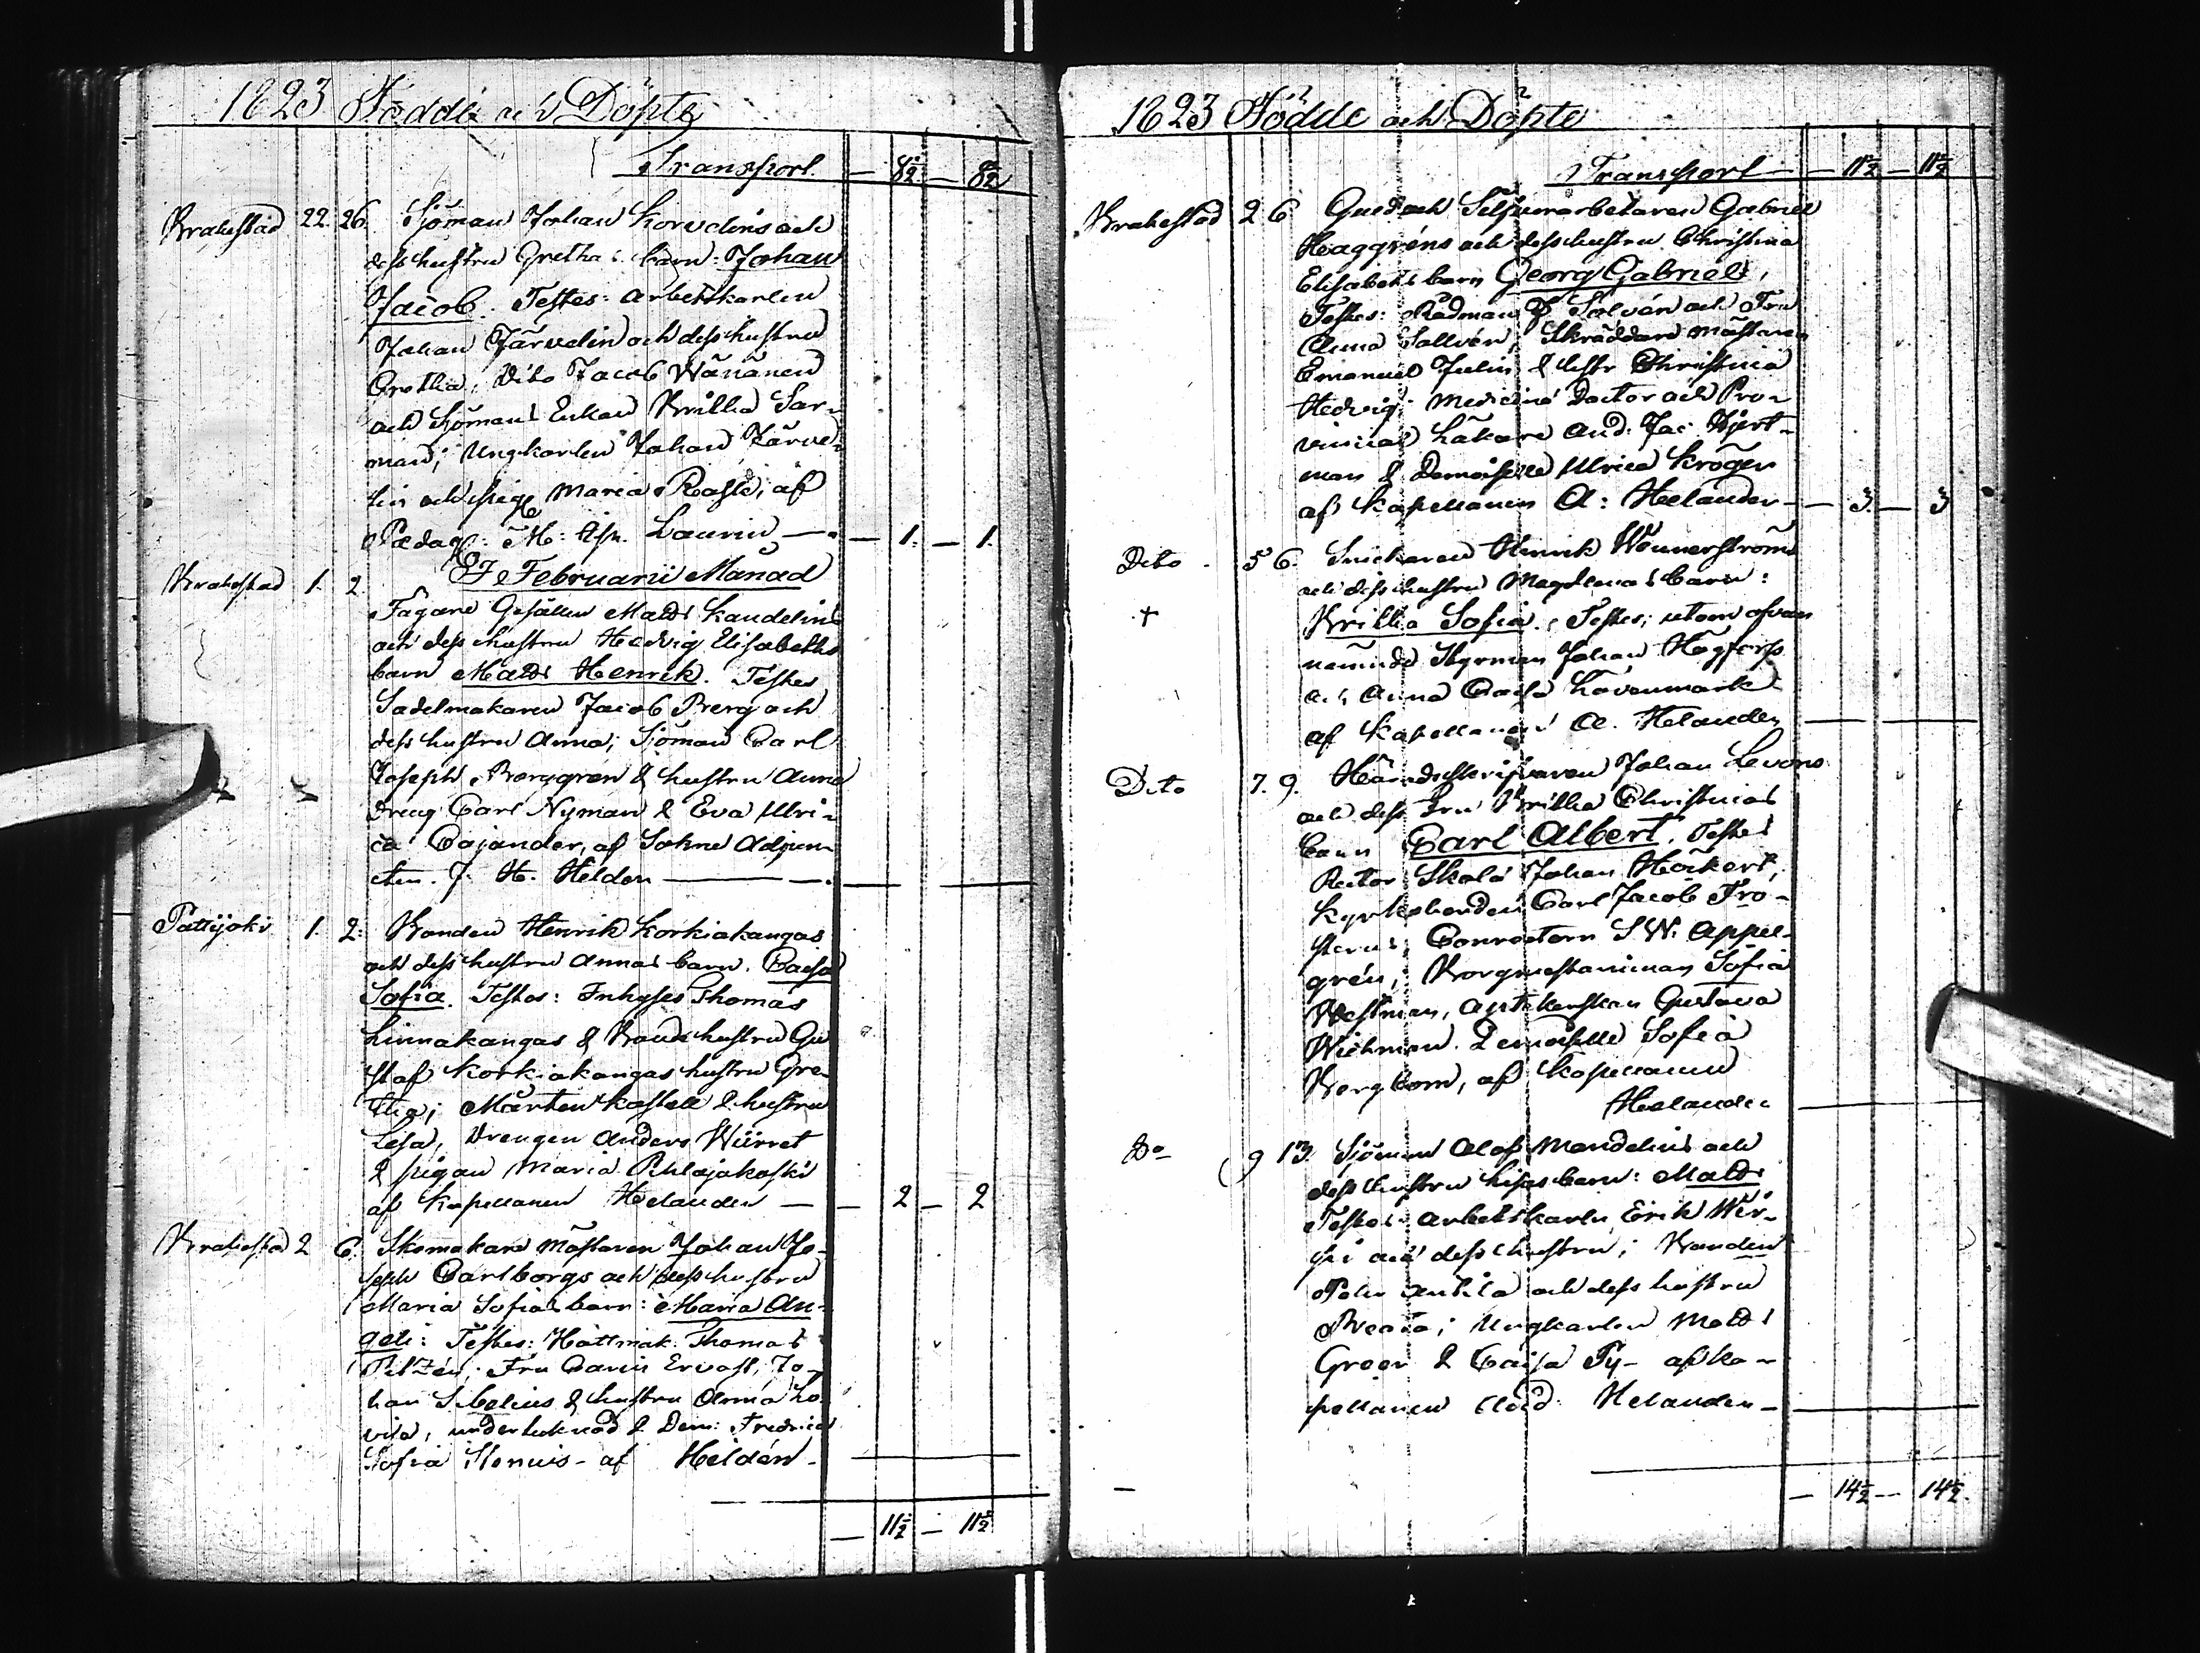 1823 Födde och Döpte
Transport. — 8½ — 8½
Brahestad 22. 26. Sjöman Johan Korvelins och
dess hustru Grethas barn: Johan
Jacob. Testes: Arbetskarlen
Johan Järvelin och dess hustru
Gretha, Dito Jacob Wänänen
och Sjömans Enkan Britha Sar-
man; Ungkarlen Johan Järve-
lin och pig Maria Rasti; af
Pædag: M: Laurin — 1. — 1.
Februarii Månad
Brahestad 1. 2.
Fägare Gesällen Matts Kandelins
och dess hustru Hedvig Elisabeths
barn Matts Henrik. Testes
Sadelmakaren Jacob Berg och
dess hustru Anna; Sjöman Carl
Joseph Berggren & hustru Anna
dreng Carl Nyman & Eva Ulri-
ca Cajander, af Sokne Adjunc-
ten. J. H. Helden —
Pattijoki 1. 2. Bonden Henrik Korkiakangas
och dess hustru Annas barn. Caisa
Sofia. Testes: Inhyses Thomas
Linnakangas & Bonde hustru Gu
staf Korkiakangas hustru Gre-
tha; Mårten Kastell & hustru
Lisa, Drengen Anders Wiirret
& pigan Maria Pihlajakoski
af Kapellanen Helander — 2 — 2
Brahestad 2 6. Skomakare Mästaren Johan Jo-
seph Carlborgs och dess hustru
Maria Sofias barn: Maria An-
geli: Testes: Hattmak. Thomas
Pelzén; Fru Carin Ervast, Jo-
han Sibelius & hustru Anna Lo-
visa, undertecknad & Dem: Fredrica
Sofia af Heldén —
— 11½ — 11½
1823 Födde och Döpte
Transport — 11½ — 11½
Brahestad 2 6 Guld och Silfverarbetaren Gabriel
Haggréns och dess hustru Christina
Elisabeths barn Georg Gabriel,
Testes: Rådman Salvén och Fru
Anna Sallvén, Skräddare Mästaren
Emanuel Julin & hustr Christina
Hedvig; Medicinæ Doctor och Pro-
vincial Läkare And: Jac: Hjert-
man & Demoiselle Ulrica Kröger
af Kapellanen A: Helander — 3 — 3
Dito 5 6. Snickaren Henrik Wennerströms
och dess hustru Magdlenas barn:
+ Britha Sofia. Testes; utom ofvan
nämnde Styrman Johan Högfors
och Anna Caisa Lövenmark
af Kapellanen A. Helander
Dito 7. 9. Häradsskrifvaren Johan Levons
och dess Fru Britha Christinas
barn Carl Albert. Testes
Rector Scholæ Johan Höckert,
Kyrkoherden Carl Jacob Fro-
sterus, Conrectorn S W. Appel-
grén; Borgmestarinnan Sofia
Westman, Apothekerskan Gustava
Wichman. Demoiselle Sofia
Borgbom, af Kapellanen
Helander
Do 9 13. Sjöman Olof Mandelius och
dess hustru Lisas barn: Matts
Testes: Arbetskarlen Erik Wir-
pi och dess hustru; Bonden
Petter Anttila och dess hustru
Beata; Ungkarlen Matts
Greer & Caisa Py- af Ka-
pellanen Helander —
— 14½ — 14½.